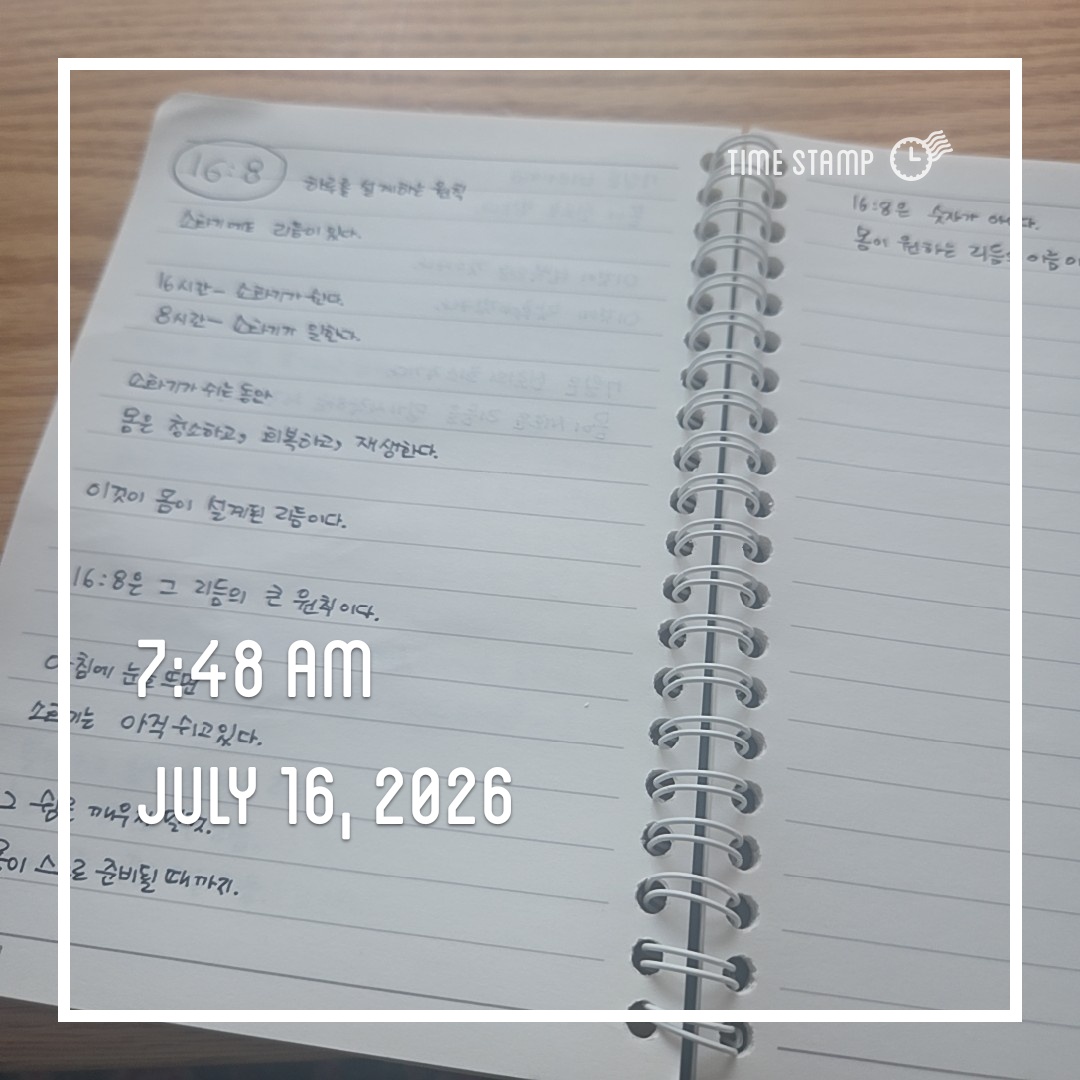 16:8 하루를 설계하는 원칙
소화기에도 리듬이 있다.
16시간 – 소화기가 쉰다.
8시간 – 소화기가 일한다.
소화기가 쉬는 동안
몸은 청소하고, 회복하고, 재생한다.
이것이 몸이 설계된 리듬이다.
16:8은 그 리듬의 큰 원칙이다.
아침에 눈을 뜨면
소화기는 아직 쉬고있다.
그 쉼을 깨우지 말 것.
몸이 스스로 준비될 때까지.
16:8은 숫자가 아니다.
몸이 원하는 리듬의 이름이
TIME STAMP
7:48 AM
JULY 16, 2026